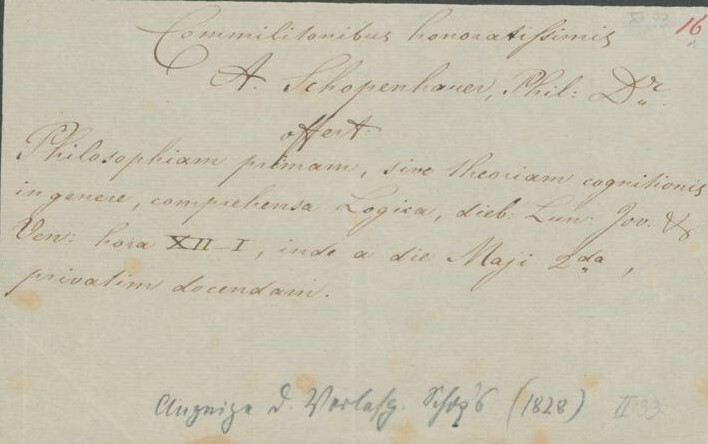 16
Commilitonibus honoratissimis
A. Schopenhauer, Phil: Dr.
offert:
Philosophiam primam, sive theoriam cognitionis
in genere, comprehensa Logica, dieb: Lun: Jov: &
Ven: hora XII–I, inde a die Maji 2da,
privatim docendam.
Anzeige d. Vorlesg. Schop's (1828) II 33